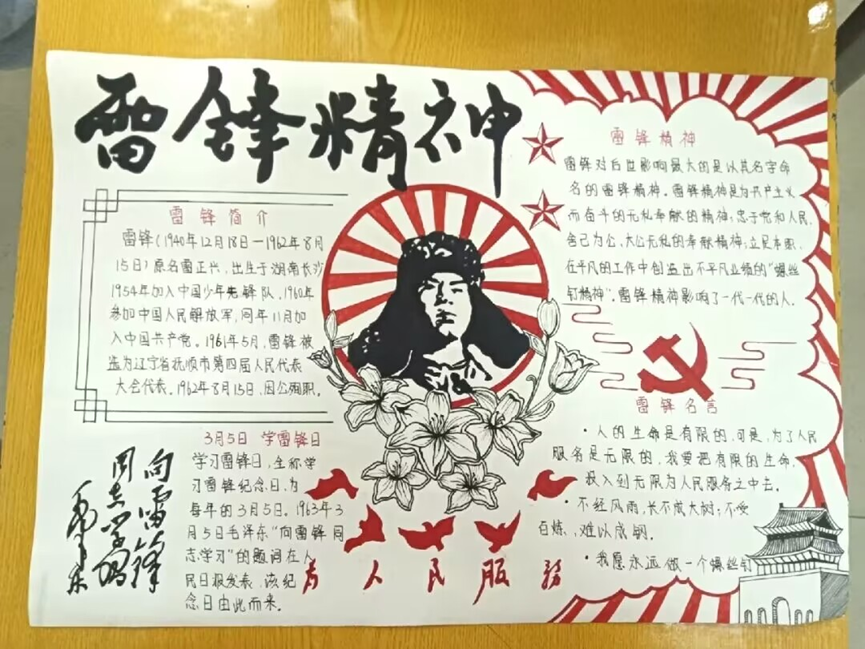 雷锋精神
雷锋简介
雷锋(1940年12月18日—1962年8月
15日)原名雷正兴,出生于湖南长沙
1954年加入中国少年先锋队,1960年
参加中国人民解放军,同年11月加
入中国共产党。1961年5月,雷锋被
选为辽宁省抚顺市第四届人民代表
大会代表。1962年8月15日,因公殉职。
雷锋精神
雷锋对后世影响最大的是以其名字命
名的雷锋精神。雷锋精神是为共产主义
而奋斗的无私奉献的精神;忠于党和人民、
舍己为公、大公无私的奉献精神;立足本职、
在平凡的工作中创造出不平凡业绩的“螺丝
钉精神”。雷锋精神影响了一代一代的人。
雷锋名言
·人的生命是有限的,可是,为了人民
服务是无限的,我要把有限的生命,
投入到无限为人民服务之中去。
·不经风雨,长不成大树;不受
百炼,难以成钢。
·我愿永远做一个螺丝钉
3月5日 学雷锋日
学习雷锋日,全称学
习雷锋纪念日,为
每年的3月5日。1963年3
月5日毛泽东“向雷锋同
志学习”的题词在人
民日报发表,该纪
念日由此而来。
向雷锋
同志学习
毛泽东
为人民服务